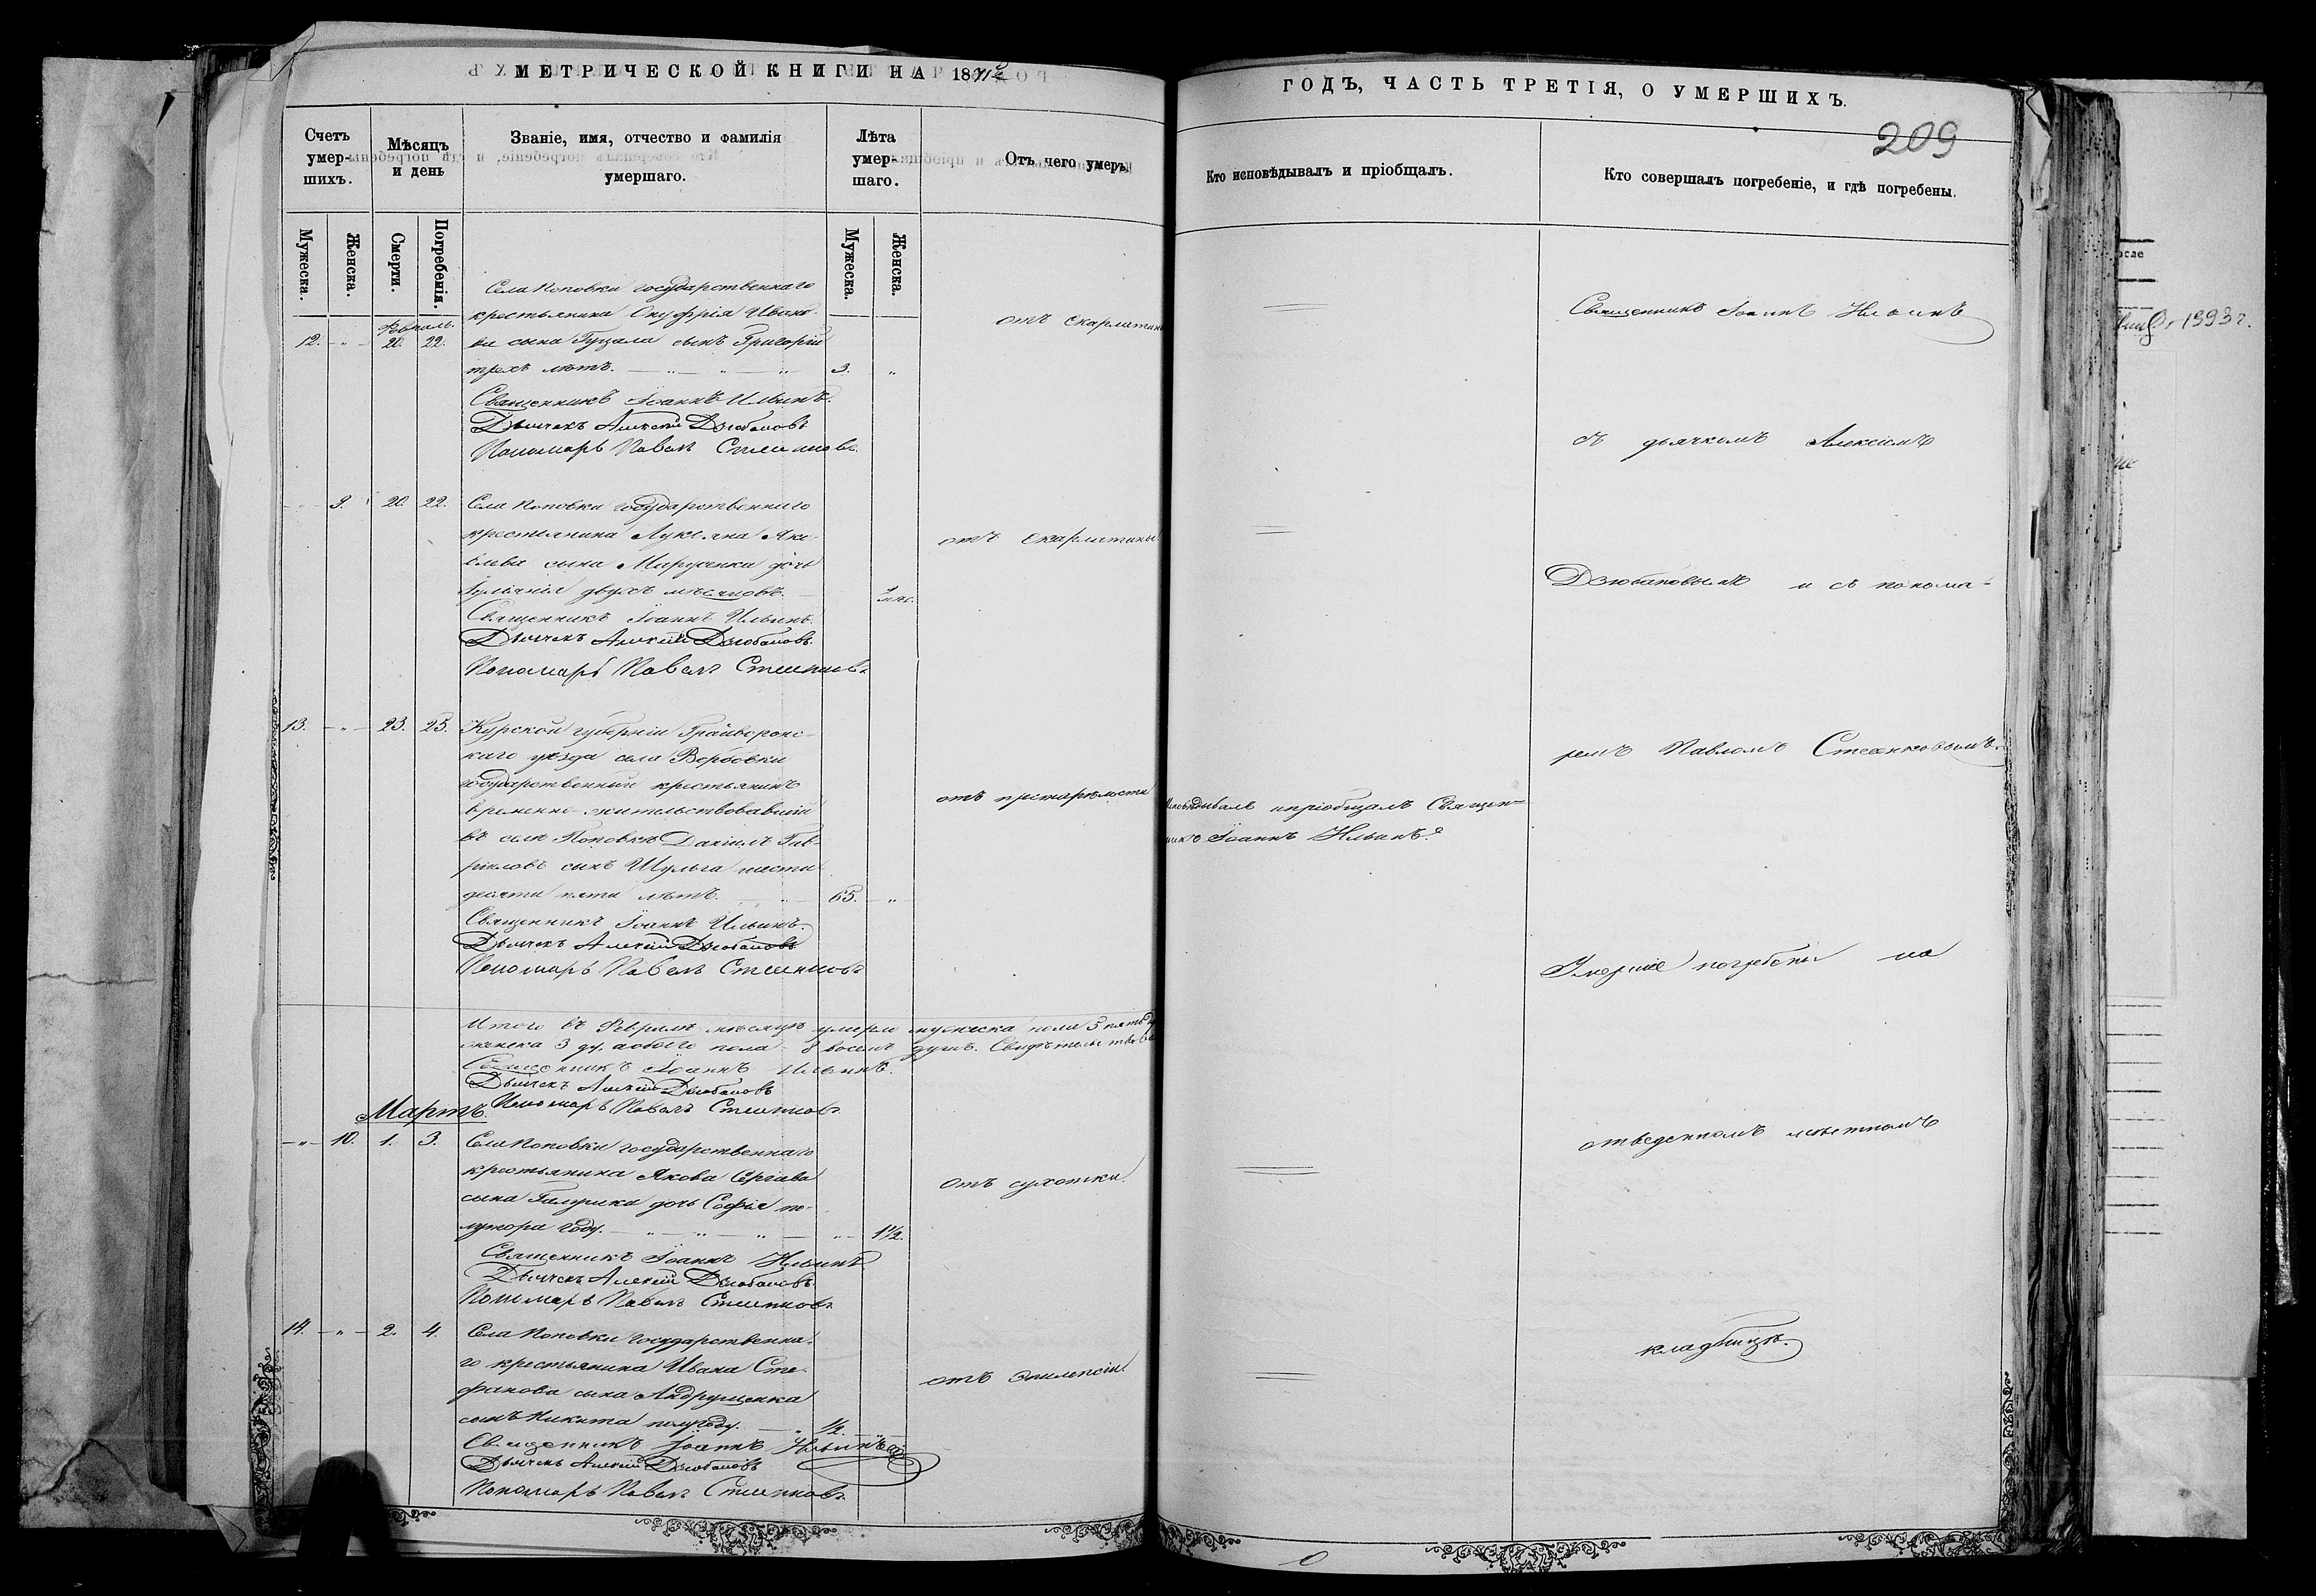 МЕТРИЧЕСКОЙ КНИГИ НА 1871
ГОДЪ, ЧАСТЬ ТРЕТІЯ, О УМЕРШИХЪ.
209
Счетъ умер-шихъ.
Мѣсяцъ и день
Званіе, имя, отчество и фамилія умершаго.
Лѣта умер-шаго.
Отъ чего умеръ.
Кто исповѣдывалъ и пріобщалъ.
Кто совершалъ погребеніе, и гдѣ погребены.
Мужеска.
Женска.
Смерти.
Погребенія.
Мужеска.
Женска.
Февраль.
Села Поповки государственнаго
крестьянина Онуфрія Ивано-
12. 20. 22. ва сына Гуцала сынъ Григорій
трехъ лѣтъ. 3.
отъ скарлатины
Священникъ Іоаннъ Ильинъ.
Дьячекъ Алексій Дзюбановъ
Пономарь Павелъ
9. 20. 22. Села Поповки государственнаго
крестьянина Лукіяна Яко-
влева сына дочь
двухъ мѣсяцовъ. 2 мѣс.
отъ скарлатины
Священникъ Іоаннъ Ильинъ.
Дьячекъ Алексій Дзюбановъ.
Пономарь Павелъ
13. 23. 25. Курской губерніи Грайворонс-
каго уѣзда села Вербовки
государственный крестьянинъ
временно-жительствовавшій
въ селѣ Поповкѣ Даніилъ Гав-
ріиловъ сынъ Шульга шести
десяти пяти лѣтъ. 65.
отъ престарѣлости
Исповѣдывалъ и пріобщалъ Священ-
никъ Іоаннъ Ильинъ
Священникъ Іоаннъ Ильинъ.
Дьячекъ Алексій Дзюбановъ
Пономарь Павелъ
Итого въ Февралѣ мѣсяцѣ умерло мужеска пола 5 пять
женска 3 ду. а обоего пола 8 восемь душъ.
Священникъ Іоаннъ Ильинъ.
Дьячекъ Алексій Дзюбановъ
Пономарь Павелъ
Мартъ.
10. 1. 3. Села Поповки государственнаго
крестьянина Якова Сергіева
сына дочь Софія по-
лутора году. 1½.
отъ сухотки.
Священникъ Іоаннъ Ильинъ
Дьячекъ Алексій Дзюбановъ.
Пономарь Павелъ
14. 2. 4. Села Поповки государственна-
го крестьянина Ивана Сте-
фанова сына Андрущенка
сынъ Никита полугоду. ½.
отъ эпилепсіи
Священникъ Іоаннъ Ильинъ
Дьячекъ Алексій Дзюбановъ
Пономарь Павелъ
Священникъ Іоаннъ Ильинъ
съ дьячкомъ Алексіемъ
Дзюбановымъ и съ понома-
ремъ Павломъ
Умершіе погребены на
отведенномъ мѣстномъ
кладбищѣ.
1993 г.